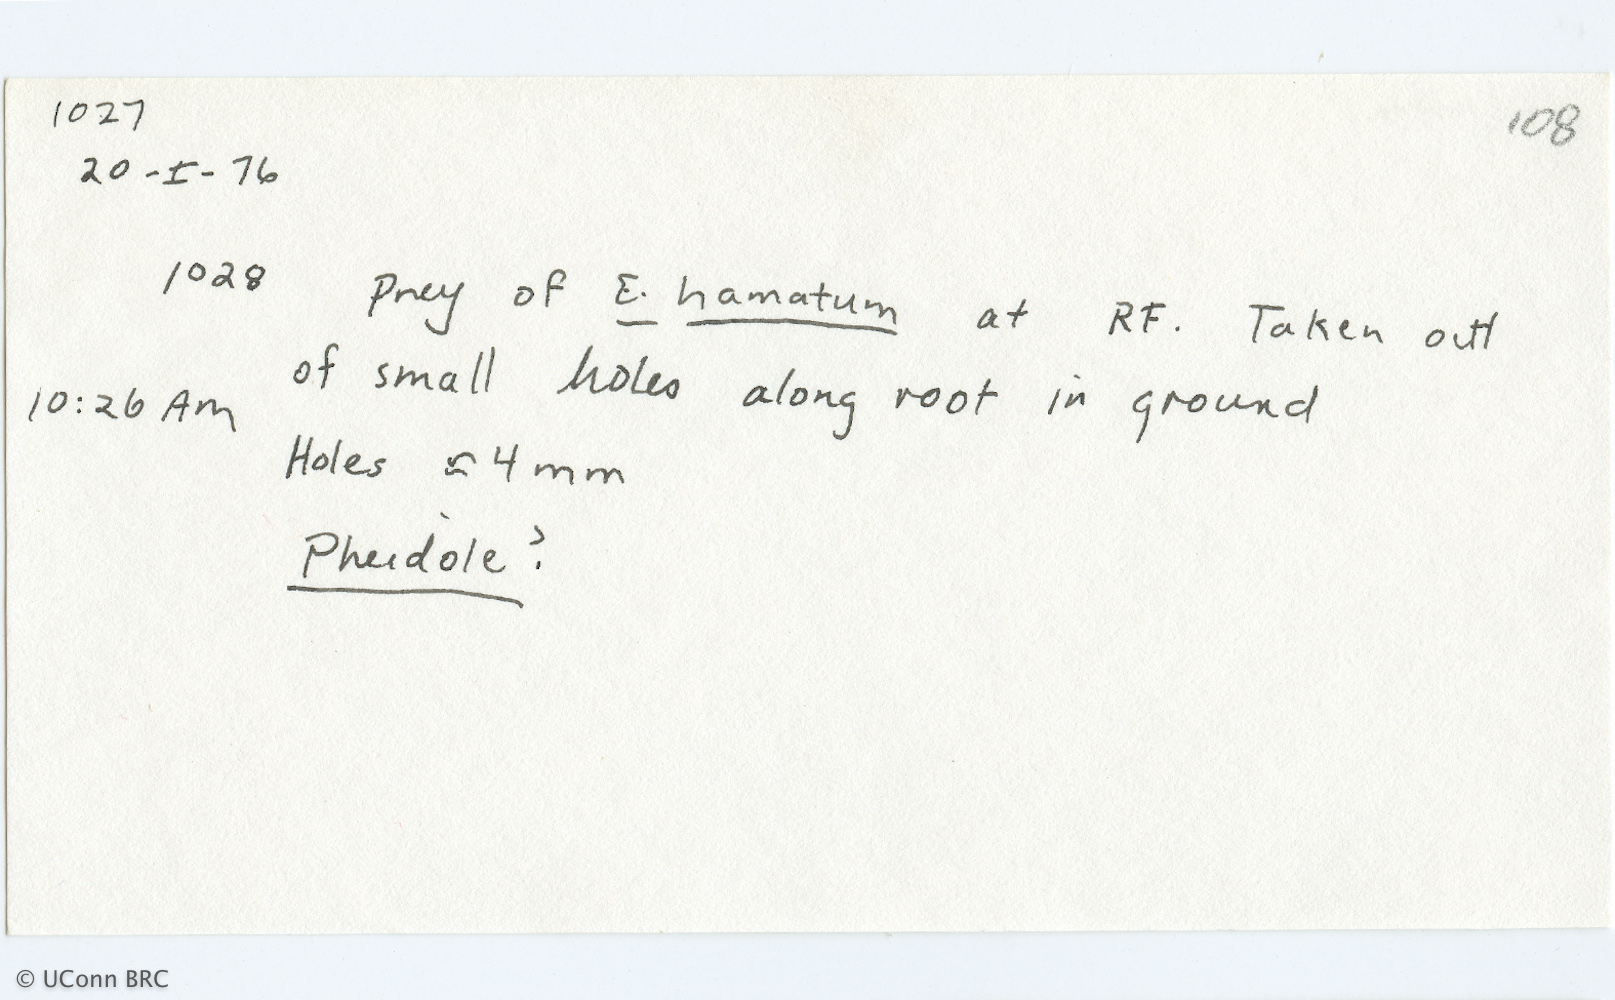 1027
108
20-I-76
1028 Prey of E. hamatum at RF. Taken out
of small holes along root in ground
10:26 Am
Holes ≈ 4 mm
Pheidole?
© UConn BRC